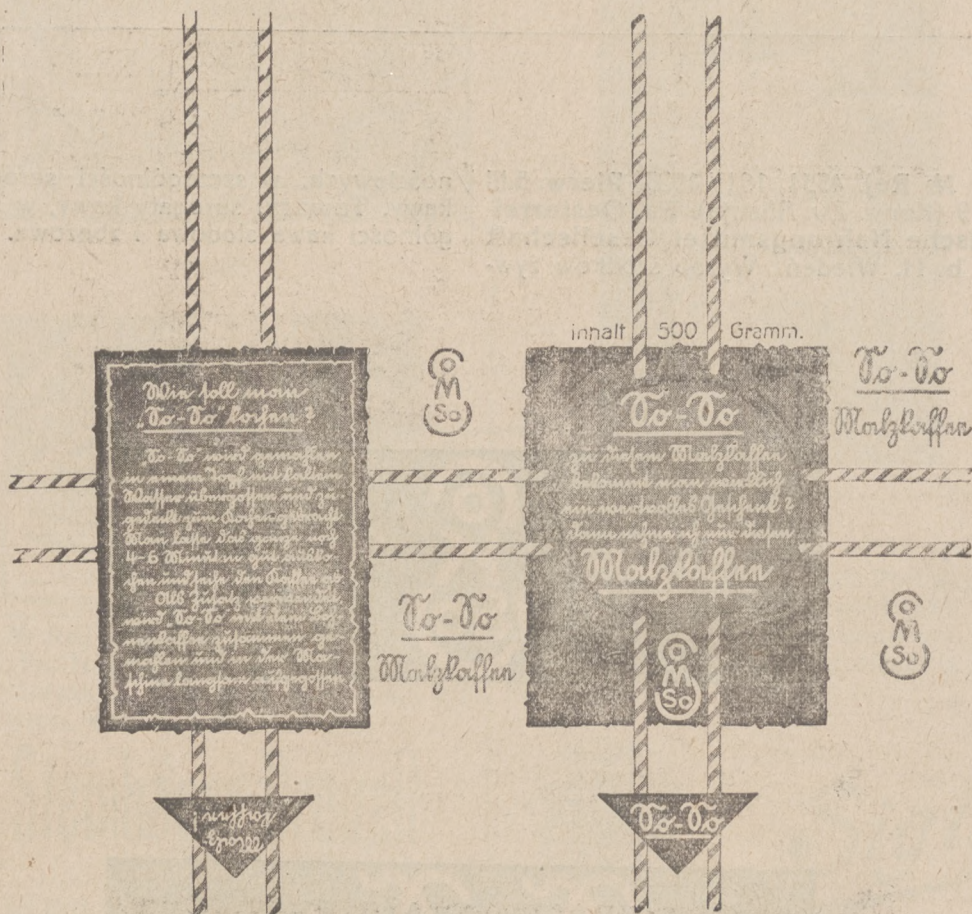 Inhalt 500 Gramm.
Wie soll man
„So-So" kochen?
„So-So" wird gemahlen
in einem Topf mit kaltem
Wasser übergossen und zu-
gedeckt zum Kochen gebracht
Man lasse das ganze noch
4-6 Minuten gut auskо-
chen und seihe den Kaffee ab
Als Zusatz verwendet
wird „So-So" mit dem Boh-
nenkaffee zusammen ge-
mahlen und in der Ma-
schine langsam aufgegossen
O
M
So
So-So
Malzkaffee
So-So
zu diesem Malzkaffee
bekommt man wirklich
ein wertvolles Geschenk?
Dann nehme ich nur diesen
Malzkaffee
O
M
So
So-So
Malzkaffee
O
M
So
Malz-
kaffee
So-So